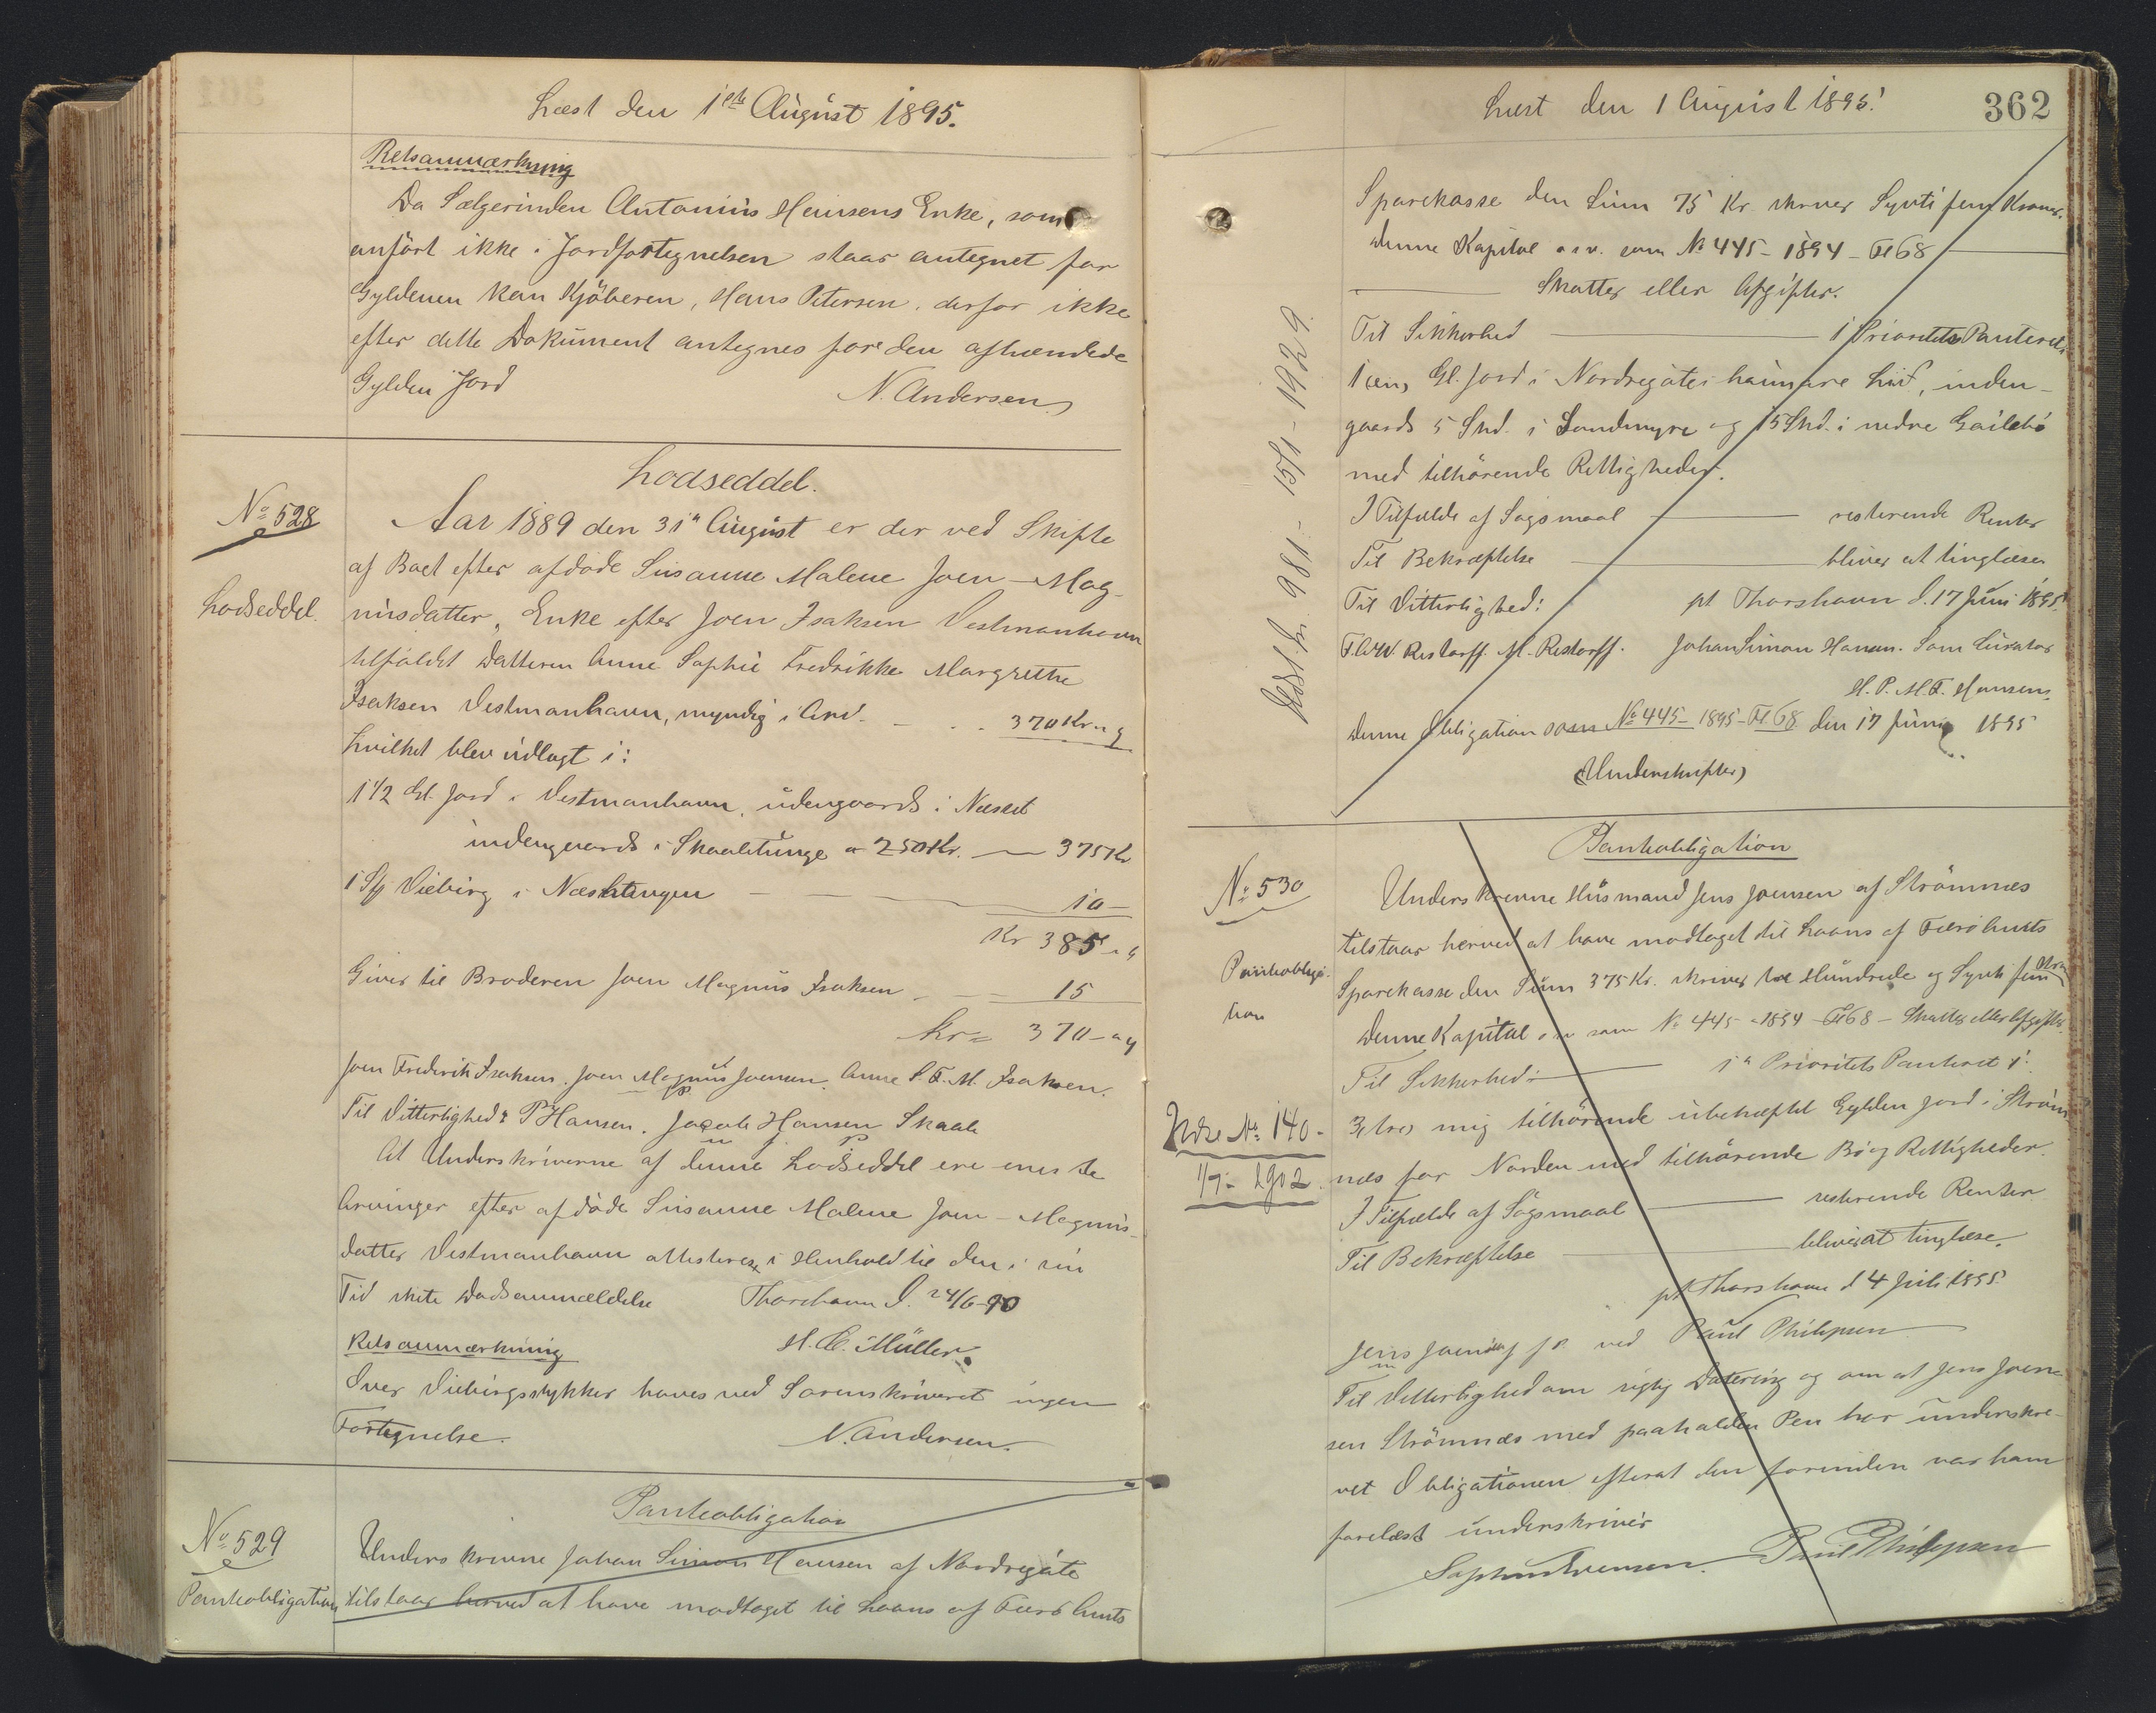 Læst den 1ste August 1895.
Retsanmærkning
Da Sælgerinden Antonius Heinsens Enke, som
anført ikke i Jordfortegnelsen staar antegnet for
Gyldenen kan Kjøberen, Hans Petersen, derfor ikke
efter dette Dokument antegnes for den afhændede
Gylden Jord
N. Andersen
Lodseddel.
No 528
Lodseddel.
Aar 1889 den 31te August er der ved Skifte
af Boet efter afdøde Susanne Malene Joen-Mag-
nusdatter, Enke efter Joen Isaksen Vestmanhavn
tilfaldet Datteren Anne Sophie Fredrikke Margrethe
Isaksen Vestmanhavn, myndig i Arv - - - 370 Kr. " ø
hvilket blev udlagt i:
1 1/2 Gl. Jord i Vestmanhavn, udengaards i Næset
indengaards i Skaaletunge a 250 Kr. — 375 Kr
1 Stk Diebirg i Næshtangen — 10 —
Kr 385 " ø
Giver til Broderen Joen Magnus Isaksen — 15
Kr = 370 - " ø
Joen Frederik Isaksen. Joen Magnus Joensen. Anne S. F. M. Isaksen.
Til Vitterlighed: P Hansen. Jacob Hansen Skaale
At Underskriverne af denne Lodseddel ere eneste
Arvinger efter afdøde Susanne Malene Joen-Magnus-
datter Vestmanhavn attesteres i Henhold til den i sin
Tid skete Dødsanmældelse Thorshavn d. 24/6-90
H. C. Müller.
Retsanmærkning
Over Diebirgsstykker haves ved Sorenskriveriet ingen
Fortegnelse.
N. Andersen.
Pantobligation
No 529
Pantobligation
Underskrevne Johan Simon Hansen af Nordregøte
tilstaar herved at have modtaget til Laans af Færø Amts
Læst den 1 August 1895.
362
Sparekasse den Sum 75 Kr. skriver Syvti fem Kroner.
Denne Kapital osv. som No 445-1894-Fl 68 —
— Skatter eller Afgifter.
Til Sikkerhed — 1 Prioritets Panteret
1 (en) Gl. Jord i Nordregøte, inden-
gaards 5 Skd. i Sandmyre og 15 Skd. i nedre Gailebø
med tilhørende Rettigheder.
I Tilfælde af Søgsmaal — resterende Renter
Til Bekræftelse — bliver at tinglæse
Til Vitterlighed: pt Thorshavn d. 17 Juni 1895.
Restorff. M. Restorff. Johan Simon Hansen. Som Curator
H. P. M. F. Hansen.
Denne Obligation som No 445-1895-Fl 68 den 17 Juni 1895
(Underskrifter)
981 - 15/1 - 1929.
Pantobligation
No 530
Pantobliga-
tion
Underskrevne Husmand Jens Joensen af Strømnes
tilstaar herved at have modtaget til Laans af Færø Amts
Sparekasse den Sum 375 Kr. skriver tre Hundrede og Syvti fem Kron
Denne Kapital osv som No 445-1894-Fl 68 - Skatter eller Afgifter.
Til Sikkerhed: — 1ste Prioritets Panteret i:
3 (tre) mig tilhørende ubehæftet Gylden Jord i Strøm
nes for Norden med tilhørende Bø og Rettigheder.
I Tilfælde af Søgsmaal — resterende Renter
Til Bekræftelse — bliver at tinglæse.
No 140-
1/7- 1902.
pt Thorshavn d 4 Juli 1895.
Jens Joensen ved Paul Philipsen
Til Vitterlighed om rigtig Datering og om at Jens Joen-
sen Strømnes med paaholden Pen har underskre-
vet Obligationen efterat den forinden var ham
forelæst underskriver
Paul Philipsen